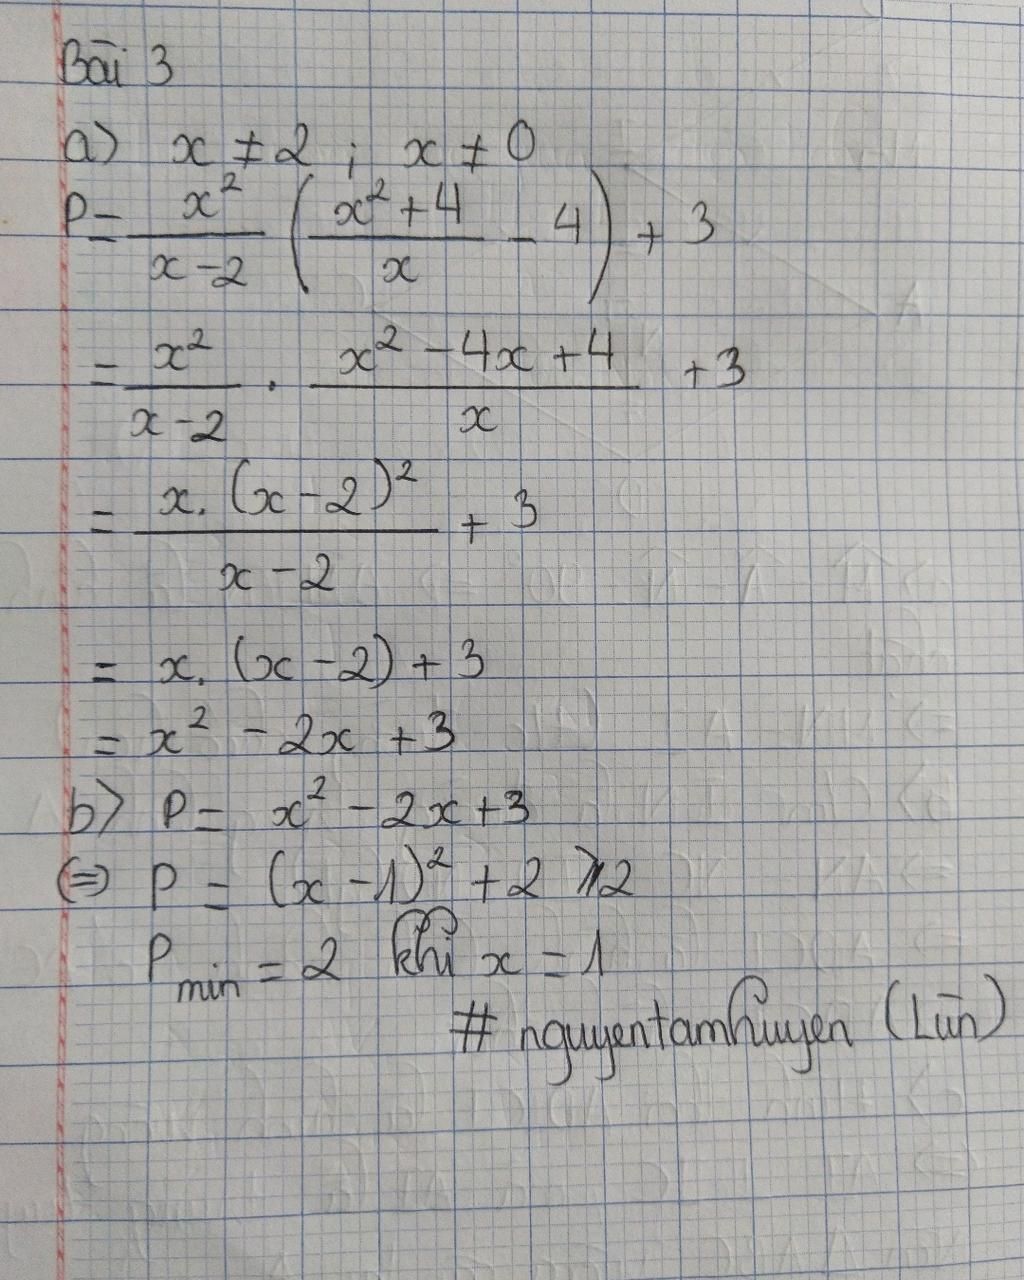 Bài 3
a) x ≠ 2 ; x ≠ 0
P = x²/(x-2) ((x²+4)/x - 4) + 3
= x²/(x-2) . (x² - 4x + 4)/x + 3
= x. (x-2)²/(x-2) + 3
= x. (x-2) + 3
= x² - 2x + 3
b) P = x² - 2x + 3
⇔ P = (x-1)² + 2 ≥ 2
P min = 2 khi x = 1
# nguyentamhuyen (Lùn)